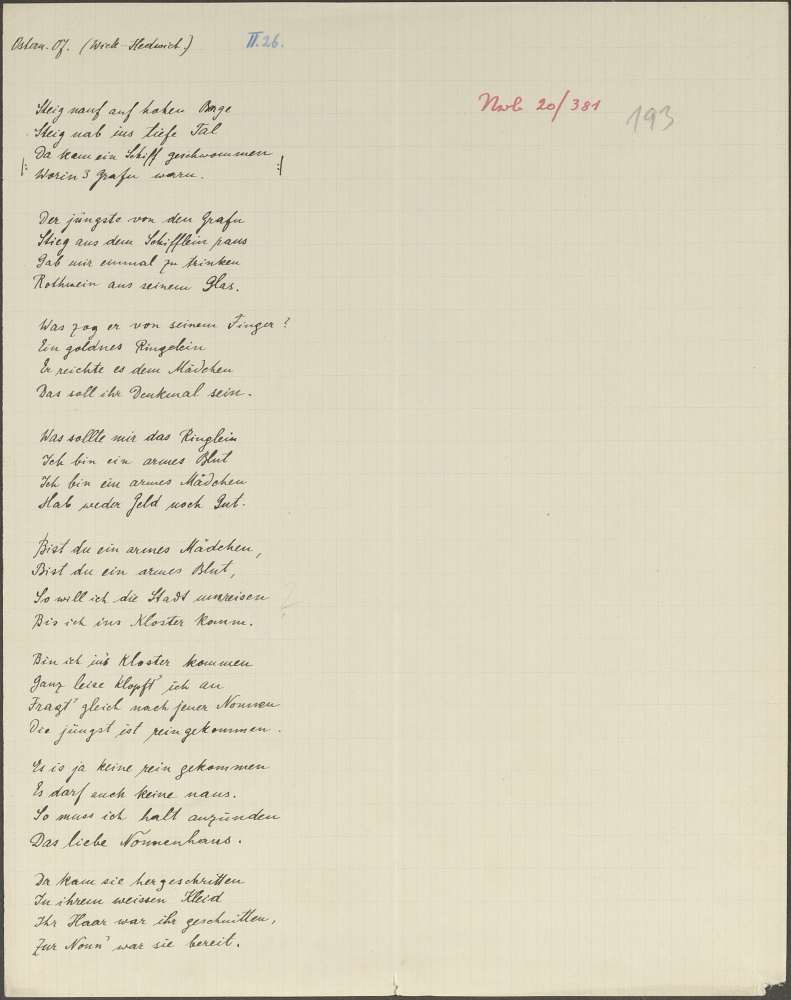 Ostern. 07. (Wick Hedwich.) II. 26.
Nwb 20/381
193
Steig nauf auf hohen Berge
Steig nab ins tiefe Tal
|: Da kam ein Schiff geschwommen
Worin 3 Grafn warn. :|
Der jüngste von den Grafn
Stieg aus dem Schifflein raus
Gab mir einmal zu trinken
Rothwein aus seinem Glas.
Was zog er von seinem Finger?
Ein goldnes Ringelein
Er reichte es dem Mädchen
Das soll ihr Denkmal sein.
Was sollte mir das Ringlein
Ich bin ein armes Blut
Ich bin ein armes Mädchen
Hab weder Geld noch Gut.
Bist du ein armes Mädchen,
Bist du ein armes Blut,
So will ich die Stadt umreisen
Bis ich ins Kloster komm.
Bin ich ins Kloster kommen
Ganz leise klopft' ich an
Fragt' gleich nach jener Nonnen
Die jüngst ist rein gekommen.
Es is ja keine rein gekommen
Es darf auch keine naus.
So muss ich halt anzünden
Das liebe Nonnenhaus.
Da kam sie hergeschritten
In ihrem weissen Kleid
Ihr Haar war ihr geschnitten,
Zur Nonn' war sie bereit.